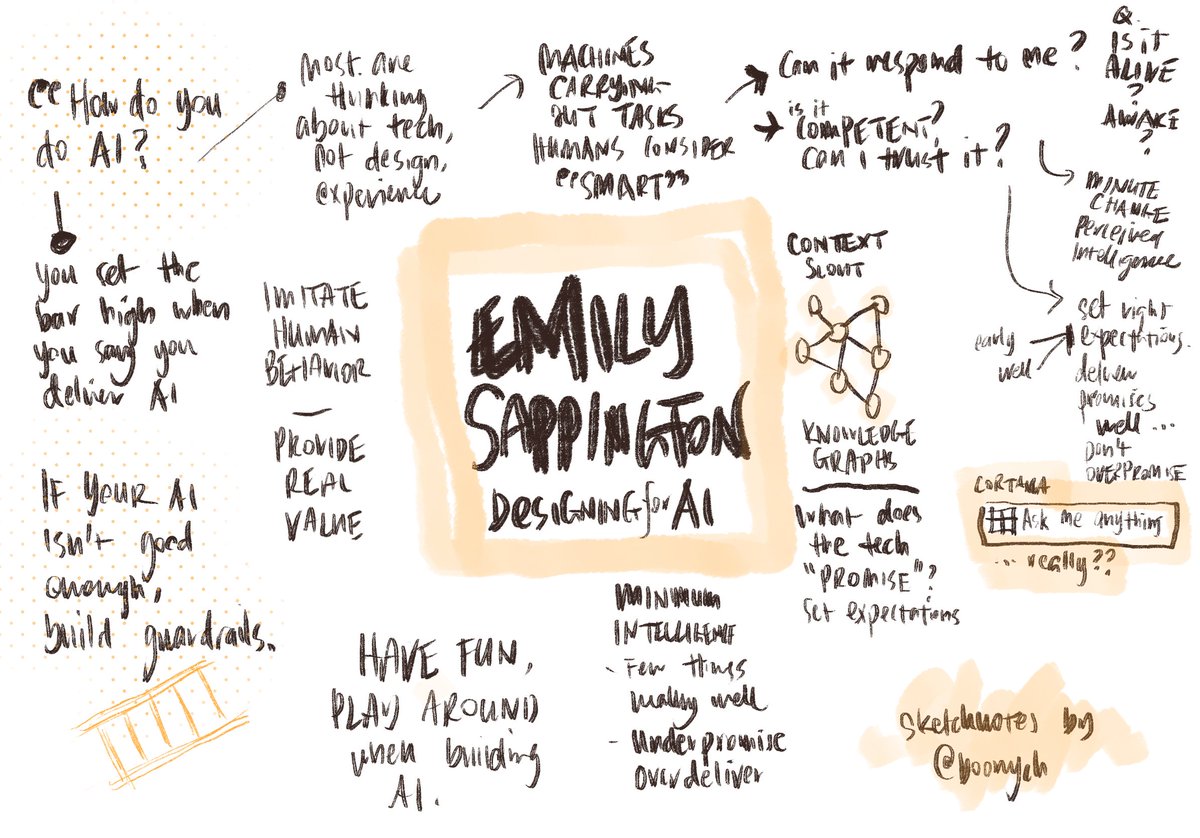 "How do you
do AI?
you set the
bar high when
you say you
deliver AI
IF YOUR AI
isn't good
enough,
build guardrails.
most are
thinking
about tech,
not design,
experience
MACHINES
CARRYING
OUT TASKS
HUMANS CONSIDER
"SMART"
Can it respond to me?
is it
COMPETENT?
Can I trust it?
Q.
IS it
ALIVE
?
AWAKE
?
MINUTE
CHANGE
Perceived
Intelligence
set right
expectations.
deliver
promises
well ...
DON'T
OVERPROMISE
early
well
IMITATE
HUMAN
BEHAVIOR
—
PROVIDE
REAL
VALUE
EMILY
SAPPINGTON
DESIGNING for AI
CONTEXT
SCOUT
KNOWLEDGE
GRAPHS
What does
the tech
"PROMISE"?
Set expectations
CORTANA
Ask me anything
... really??
HAVE FUN,
PLAY AROUND
when building
AI.
MINIMUM
INTELLIGENCE
- Few things
really well
- Underpromise
Overdeliver
sketchnotes by
@boonych